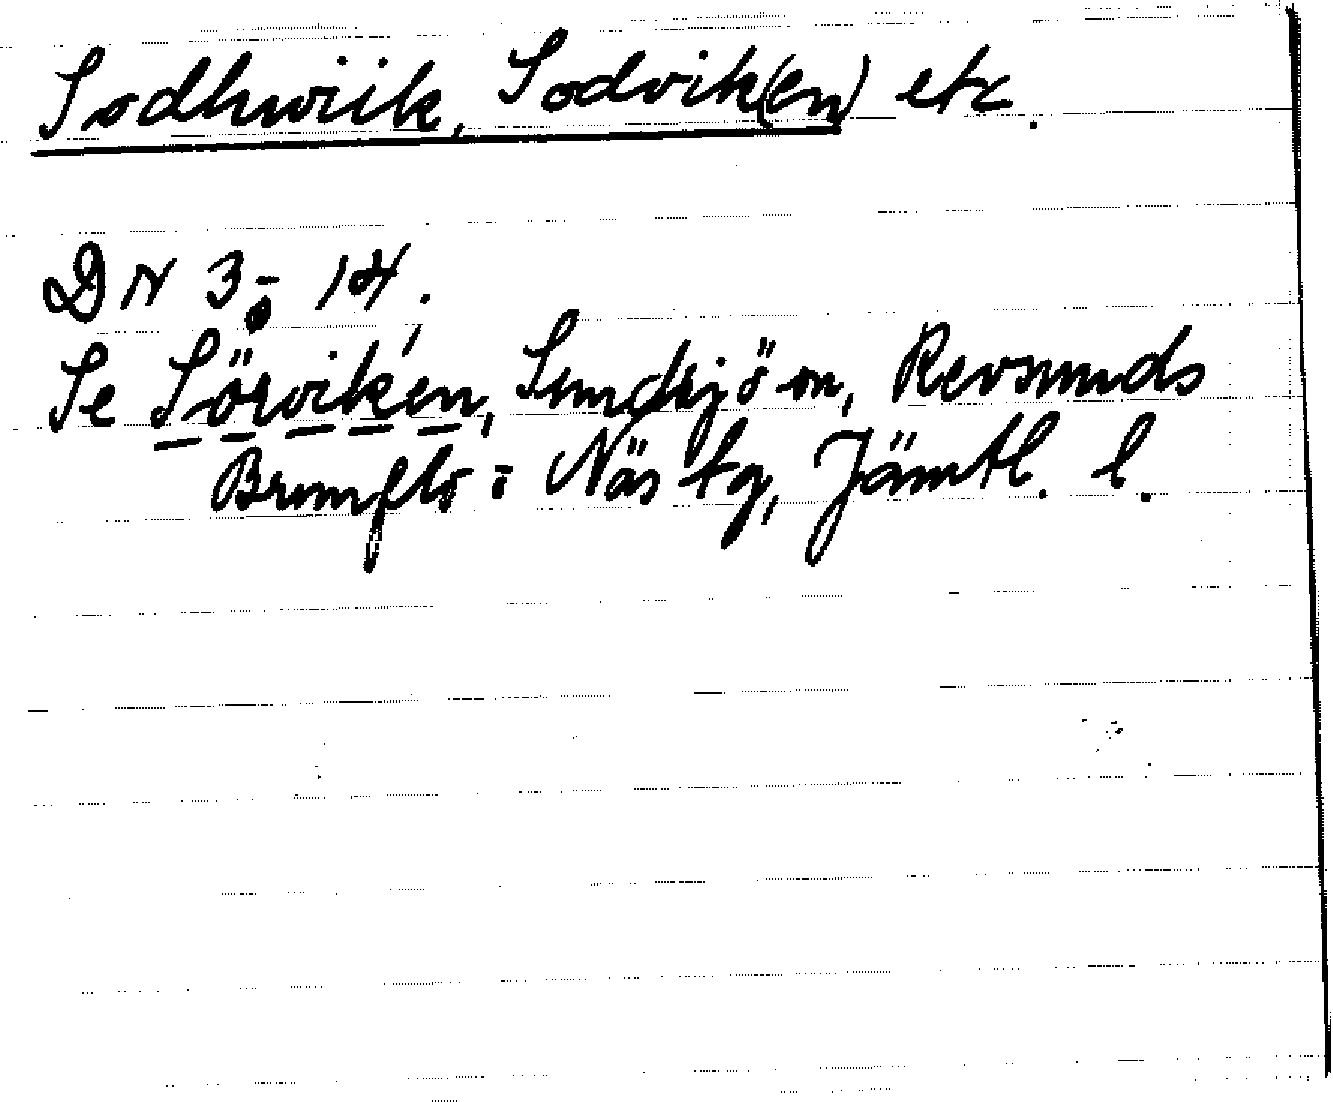 Sodhwiik, Sodvik(en) etc.
DN 3: 14.
Se Sörviken, Sundsjö sn, Revsunds
Brunflo o Näs tg, Jämtl. l.